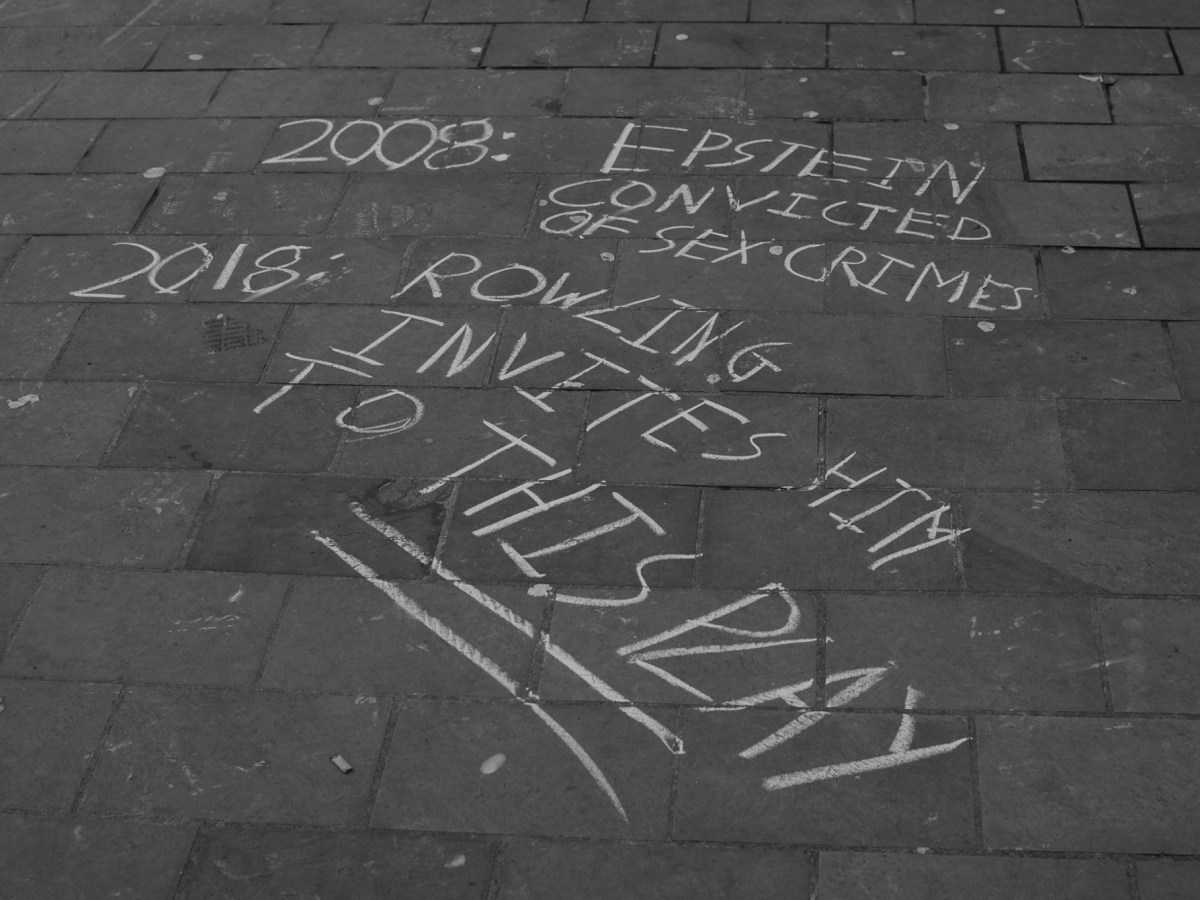 2008: EPSTEIN
CONVICTED
OF SEX·CRIMES
2018: ROWLING
INVITES HIM
TO THIS PLAY